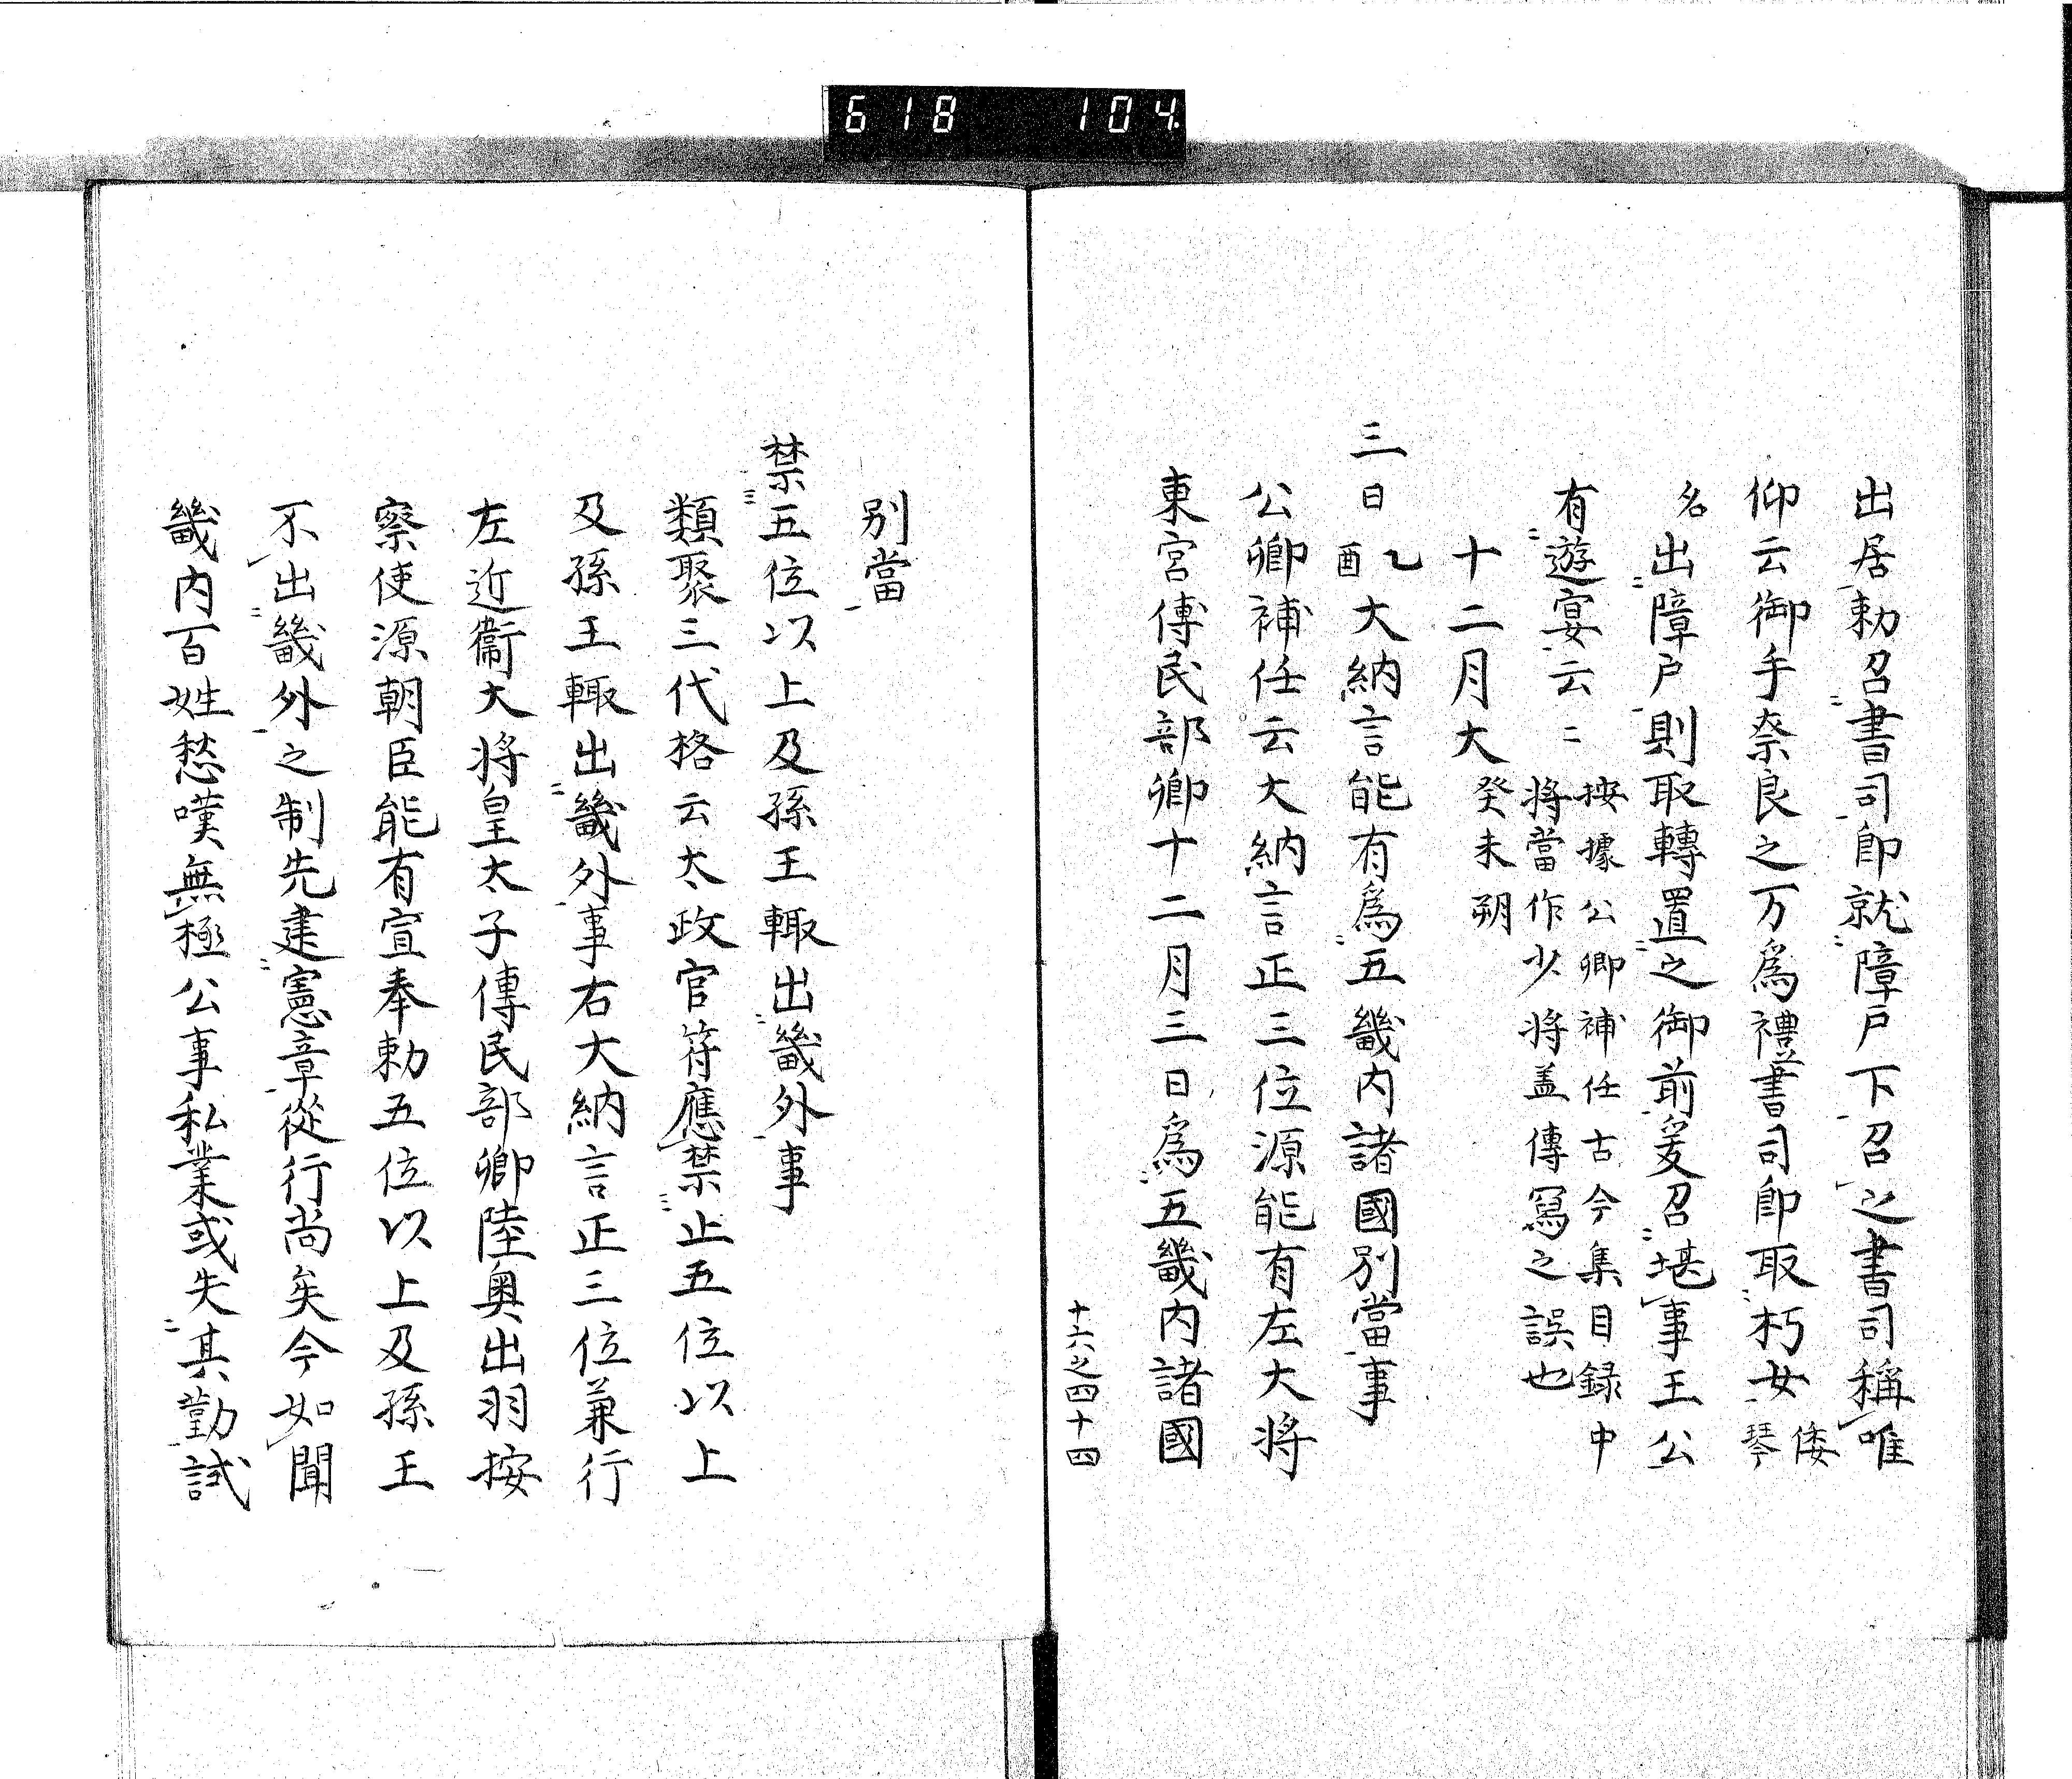 618 104
出居勅召書司即就障戸下召之書司稱唯
仰云御手奈良之万爲禮書司即取朽女倭琴
名出障戸則取轉置之御前爰召堪事王公
有遊宴云〻按據公卿補任古今集目録中
將當作少將盖傳冩之誤也
十二月大癸未朔
三日乙酉大納言能有爲五畿内諸國別當事
公卿補任云大納言正三位源能有左大將
東宮傅民部卿十二月三日爲五畿内諸國
十六之四十四
別當
禁五位以上及孫王輙出畿外事
類聚三代格云太政官符應禁止五位以上
及孫王輙出畿外事右大納言正三位兼行
左近衞大將皇太子傅民部卿陸奥出羽按
察使源朝臣能有宣奉勅五位以上及孫王
不出畿外之制先建憲章從行尚矣今如聞
畿内百姓愁嘆無極公事私業或失其勤試